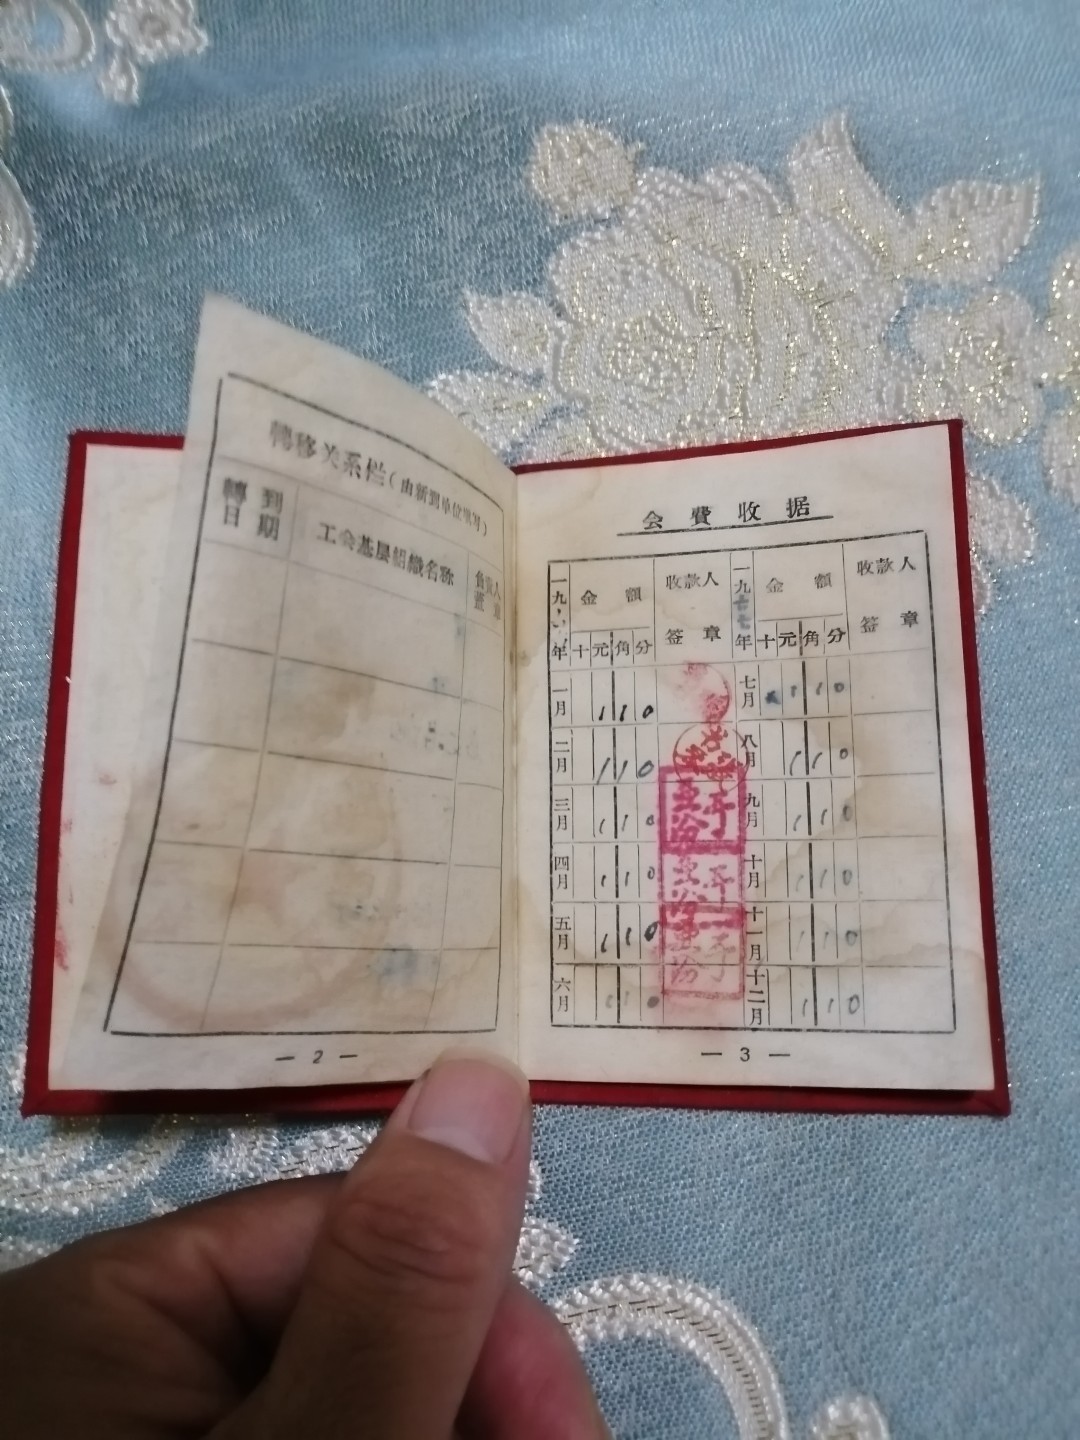 轉移关系栏(由新到单位填写)
轉到
日期
工会基层組織名称
負責人
蓋章
— 2 —
会費收据
一九 年
金額
收款人
签章
十元角分
一九 年
金額
收款人
签章
十元角分
一月 1 1 0
七月 1 1 0
二月 1 1 0
八月 1 1 0
三月 1 1 0
九月 1 1 0
四月 1 1 0
十月 1 1 0
五月 1 1 0
十一月 1 1 0
六月 1 1 0
十二月 1 1 0
— 3 —